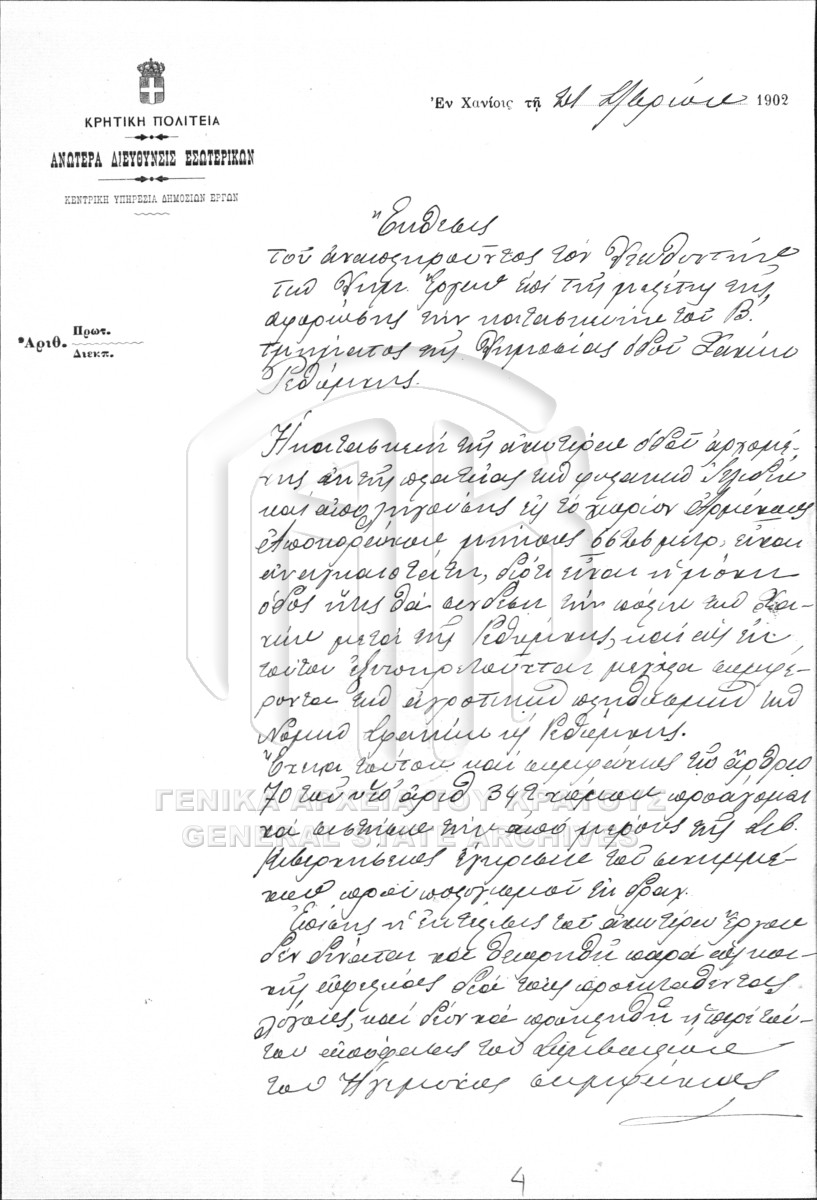 ΚΡΗΤΙΚΗ ΠΟΛΙΤΕΙΑ
ΑΝΩΤΕΡΑ ΔΙΕΥΘΥΝΣΙΣ ΕΣΩΤΕΡΙΚΩΝ
ΚΕΝΤΡΙΚΗ ΥΠΗΡΕΣΙΑ ΔΗΜΟΣΙΩΝ ΕΡΓΩΝ
Ἐν Χανίοις τῇ 21 1902
Ἀριθ. Πρωτ.
Διεκπ.
Ἔκθεσις
τοῦ ἀναπληροῦντος τὸν Διευθυντὴν
τῶν Δημ. Ἔργων ἐπὶ τῆς μελέτης τῆς
ἀφορώσης τὴν κατασκευὴν τοῦ Β.
τμήματος τῆς Δημοσίας ὁδοῦ Χανίων
Ρεθύμνης.
Ἡ κατασκευὴ τῆς ἀνωτέρω ὁδοῦ ἀρχομέ-
νης ἐκ τῆς πλατείας τῶν φυλακῶν
καὶ ἀποληγούσης εἰς τὸ χωρίον Ἀρμένους
Ἀποκορώνου μήκους μετρ, εἶναι
ἀναγκαιοτάτη, διότι εἶναι ἡ μόνη
ὁδὸς ἥτις θὰ συνδέσῃ τὴν πόλιν τῶν Χα-
νίων μετὰ τῆς Ρεθύμνης, καὶ ὡς ἐκ
τούτου ἐξυπηρετοῦνται μεγάλα συμφέ-
ροντα τοῦ ἀγροτικοῦ πληθυσμοῦ τῶν
Νομῶν Σφακίων Ρεθύμνης.
Ἕνεκα τούτου καὶ συμφώνως τῷ ἄρθρῳ
70 τοῦ ὑπ' ἀριθ 349 νόμου προάγομαι
νὰ συστήσω τὴν ἀπὸ μέρους τῆς Σεβ.
Κυβερνήσεως ἔγκρισιν τοῦ συνημμέ-
νου προϋπολογισμοῦ ἐκ δραχ.
Ἐπίσης ἡ ἐκτέλεσις τοῦ ἀνωτέρω ἔργου
δὲν δύναται νὰ θεωρηθῇ παρὰ ὡς κοι-
νῆς ὠφελείας διὰ τοὺς προεκτεθέντας
λόγους, καὶ δέον νὰ προκληθῇ ἡ περὶ τού-
του ἀπόφασις τοῦ Συμβουλίου
τοῦ Ἡγεμόνος συμφώνως
4
ΓΕΝΙΚΑ ΑΡΧΕΙΑ ΤΟΥ ΚΡΑΤΟΥΣ
GENERAL STATE ARCHIVES